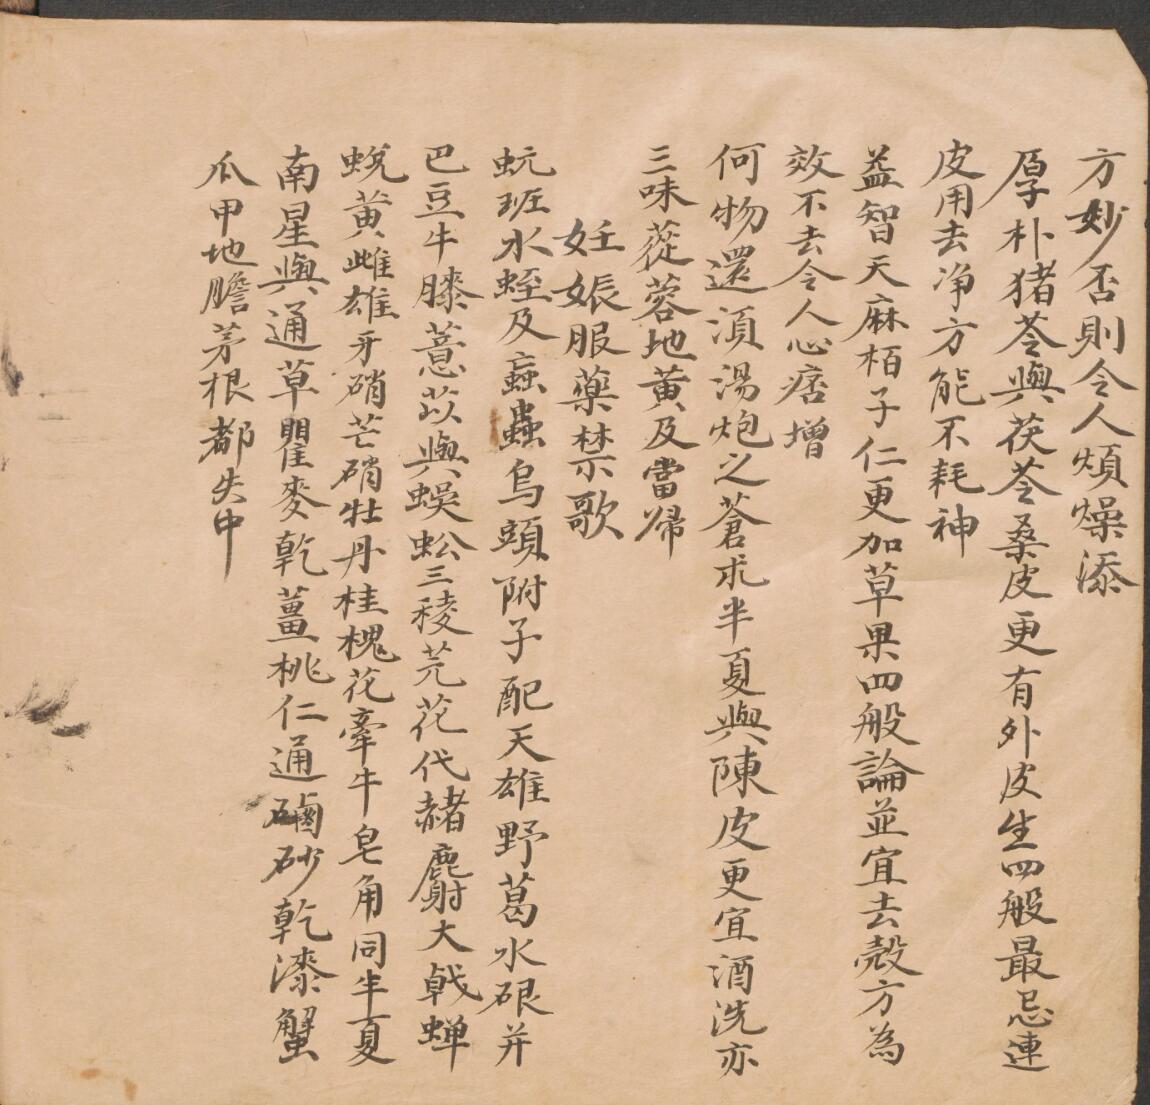 方妙否則令人煩燥添
厚朴猪苓與茯苓桑皮更有外皮生四般最忌連
皮用去净方能不耗神
益智天麻栢子仁更加草果四般論並宜去殼方為
效不去令人心痞增
何物還湏湯炮之蒼朮半夏與陳皮更宜酒洗亦
三味蓯蓉地黃及當歸
妊娠服藥禁歌
蚖班水蛭及蝱蟲烏頭附子配天雄野葛水硍并
巴豆牛膝薏苡與蜈蚣三稜芫花代赭麝大戟蝉
蛻黃雌雄牙硝芒硝牡丹桂槐花牽牛皂角同半夏
南星與通草瞿麥乾薑桃仁通硇砂乾漆蟹
爪甲地膽茅根都失中